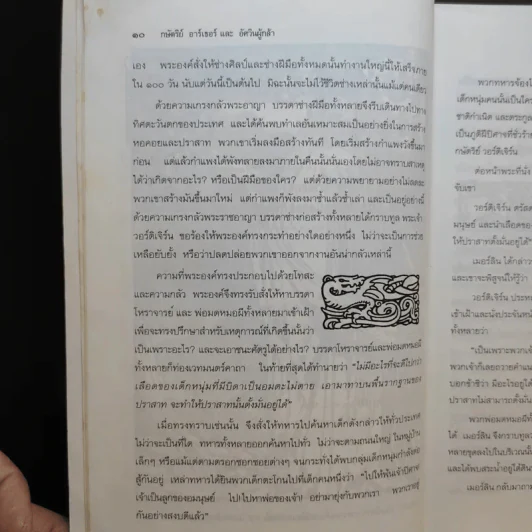 ๑๐ กษัตริย์ อาร์เธอร์ และ อัศวินผู้กล้า
เอง พระองค์สั่งให้ช่างศิลป์และช่างฝีมือทั้งหมดนั้นทำงานใหญ่นี้ให้เสร็จภาย
ใน ๑๐๐ วัน นับแต่วันนี้เป็นต้นไป มิฉะนั้นจะไม่ไว้ชีวิตช่างเหล่านั้นแม้แต่คนเดียว
ด้วยความเกรงกลัวพระอาญา บรรดาช่างฝีมือทั้งหลายจึงรีบเดินทางไปทาง
ทิศตะวันตกของประเทศ และได้ค้นพบทำเลอันเหมาะสมเป็นอย่างยิ่งในการสร้าง
หอคอยและปราสาท พวกเขาเริ่มลงมือสร้างทันที โดยเริ่มสร้างกำแพงวังขึ้นมา
ก่อน แต่แล้วกำแพงได้พังทลายลงมาภายในคืนนั้นนั่นเองโดยไม่อาจทราบสาเหตุ
ได้ว่าเกิดจากอะไร? หรือเป็นฝีมือของใคร? แต่ด้วยความพยายามอย่างไม่ลดละ
พวกเขาสร้างมันขึ้นมาใหม่ แต่กำแพงก็พังลงมาซ้ำแล้วซ้ำเล่า และเป็นอยู่อย่างนี้
ด้วยความเกรงกลัวพระราชอาญา บรรดาช่างก่อสร้างทั้งหลายได้กราบทูล พระเจ้า
วอร์ติเจิร์น ขอร้องให้พระองค์ทรงกระทำอย่างใดอย่างหนึ่ง ไม่ว่าจะเป็นการช่วย
เหลือยับยั้ง หรือว่าปลดปล่อยพวกเขาออกจากงานอันน่ากลัวเหล่านี้
ความที่พระองค์ทรงประกอบไปด้วยโทสะ
และความกลัว พระองค์จึงทรงรับสั่งให้หาบรรดา
โหราจารย์ และ พ่อมดหมอผีทั้งหลายมาเข้าเฝ้า
เพื่อจะทรงปรึกษาสำหรับเหตุการณ์ที่เกิดขึ้นนั้นว่า
เป็นเพราะอะไร? และจะเอาชนะศัตรูได้อย่างไร? บรรดาโหราจารย์และพ่อมดหมอผี
ทั้งหลายก็ท่องเวทมนตร์คาถา ในท้ายที่สุดได้ทำนายว่า "ไม่มีอะไรที่จะดีไปกว่า
เลือดของเด็กหนุ่มที่มีบิดาเป็นอมตะไม่ตาย เอามาทาบนพื้นรากฐานของ
ปราสาท จะทำให้ปราสาทนั้นตั้งมั่นอยู่ได้"
เมื่อทรงทราบเช่นนั้น จึงสั่งให้ทหารไปค้นหาเด็กดังกล่าวให้ทั่วประเทศ
ไม่ว่าจะเป็นที่ใด ทหารทั้งหลายออกค้นหาไปทั่ว ไม่ว่าจะตามถนนใหญ่ ในหมู่บ้าน
เล็กๆ หรือแม้แต่ตามตรอกซอกซอยต่างๆ จนกระทั่งได้พบกลุ่มเด็กหนุ่มกำลังต่อ
สู้กันอยู่ เหล่าทหารได้ยินพวกเด็กตะโกนไปที่เด็กคนหนึ่งว่า "ไปให้พ้นเจ้าปีศาจ!
เจ้าเป็นลูกของอมนุษย์ ไป!ไปหาพ่อของเจ้า! อย่ามายุ่งกับพวกเรา
กันอย่างสงบดีแล้ว"
พวกทหารจ้อง
เด็กหนุ่มคนนั้นเป็นใคร
ชาติกำเนิด และตระกูล
เป็นภูติผีปีศาจที่ชั่วร้า
กษัตริย์ วอร์ติเจิร์น
ต่อหน้าพระที่นั่ง
จับเขา
วอร์ติเจิร์น ตรัสต
มนุษย์ และนำเลือดของ
ให้ปราสาทตั้งมั่นอยู่ได้"
เมอร์ลิน ได้กล่าว
และเขาจะพิสูจน์ให้รู้ว่า
วอร์ติเจิร์น ประห
เข้าเฝ้าและนั่งประจันหน้
ทั้งหลายว่า
"เป็นเพราะพวกเจ้า
พวกเจ้าก็เลยถวายคำแน
บอกข้าซิว่า มีอะไรอยู่ใต้
ปราสาทไม่สามารถตั้งมั่นอ
พวกพ่อมดหมอผีทั้
ได้ เมอร์ลิน จึงกราบทูลว
หลายขุดลงไปในบริเวณนั้น
และได้พบสระน้ำอยู่ใต้ดิน
เมอร์ลิน กลับมาถาม